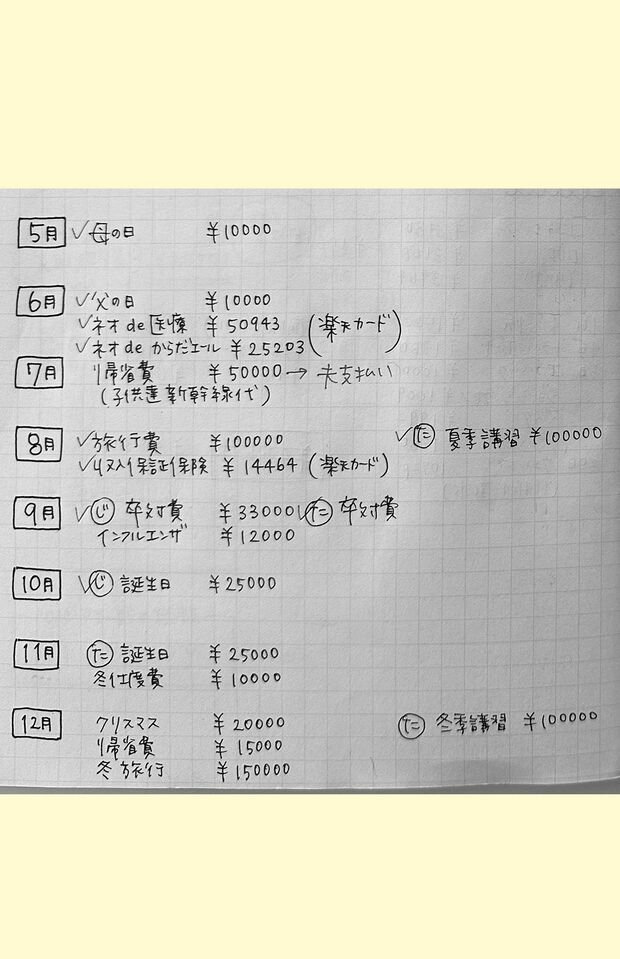 5月 ✓母の日 ¥10000
6月 ✓父の日 ¥10000
✓ネオde医療 ¥50943 (楽天カード)
✓ネオdeからだエール ¥25203
7月 帰省費 ¥50000→未支払い
(子供達新幹線代)
8月 ✓旅行費 ¥100000 ✓た 夏季講習 ¥100000
✓収入保証保険 ¥14464 (楽天カード)
9月 ✓じ 卒対費 ¥33000 ✓た 卒対費
インフルエンザ ¥12000
10月 ✓じ 誕生日 ¥25000
11月 た 誕生日 ¥25000
冬仕度費 ¥10000
12月 クリスマス ¥20000 た 冬季講習 ¥100000
帰省費 ¥15000
冬旅行 ¥150000